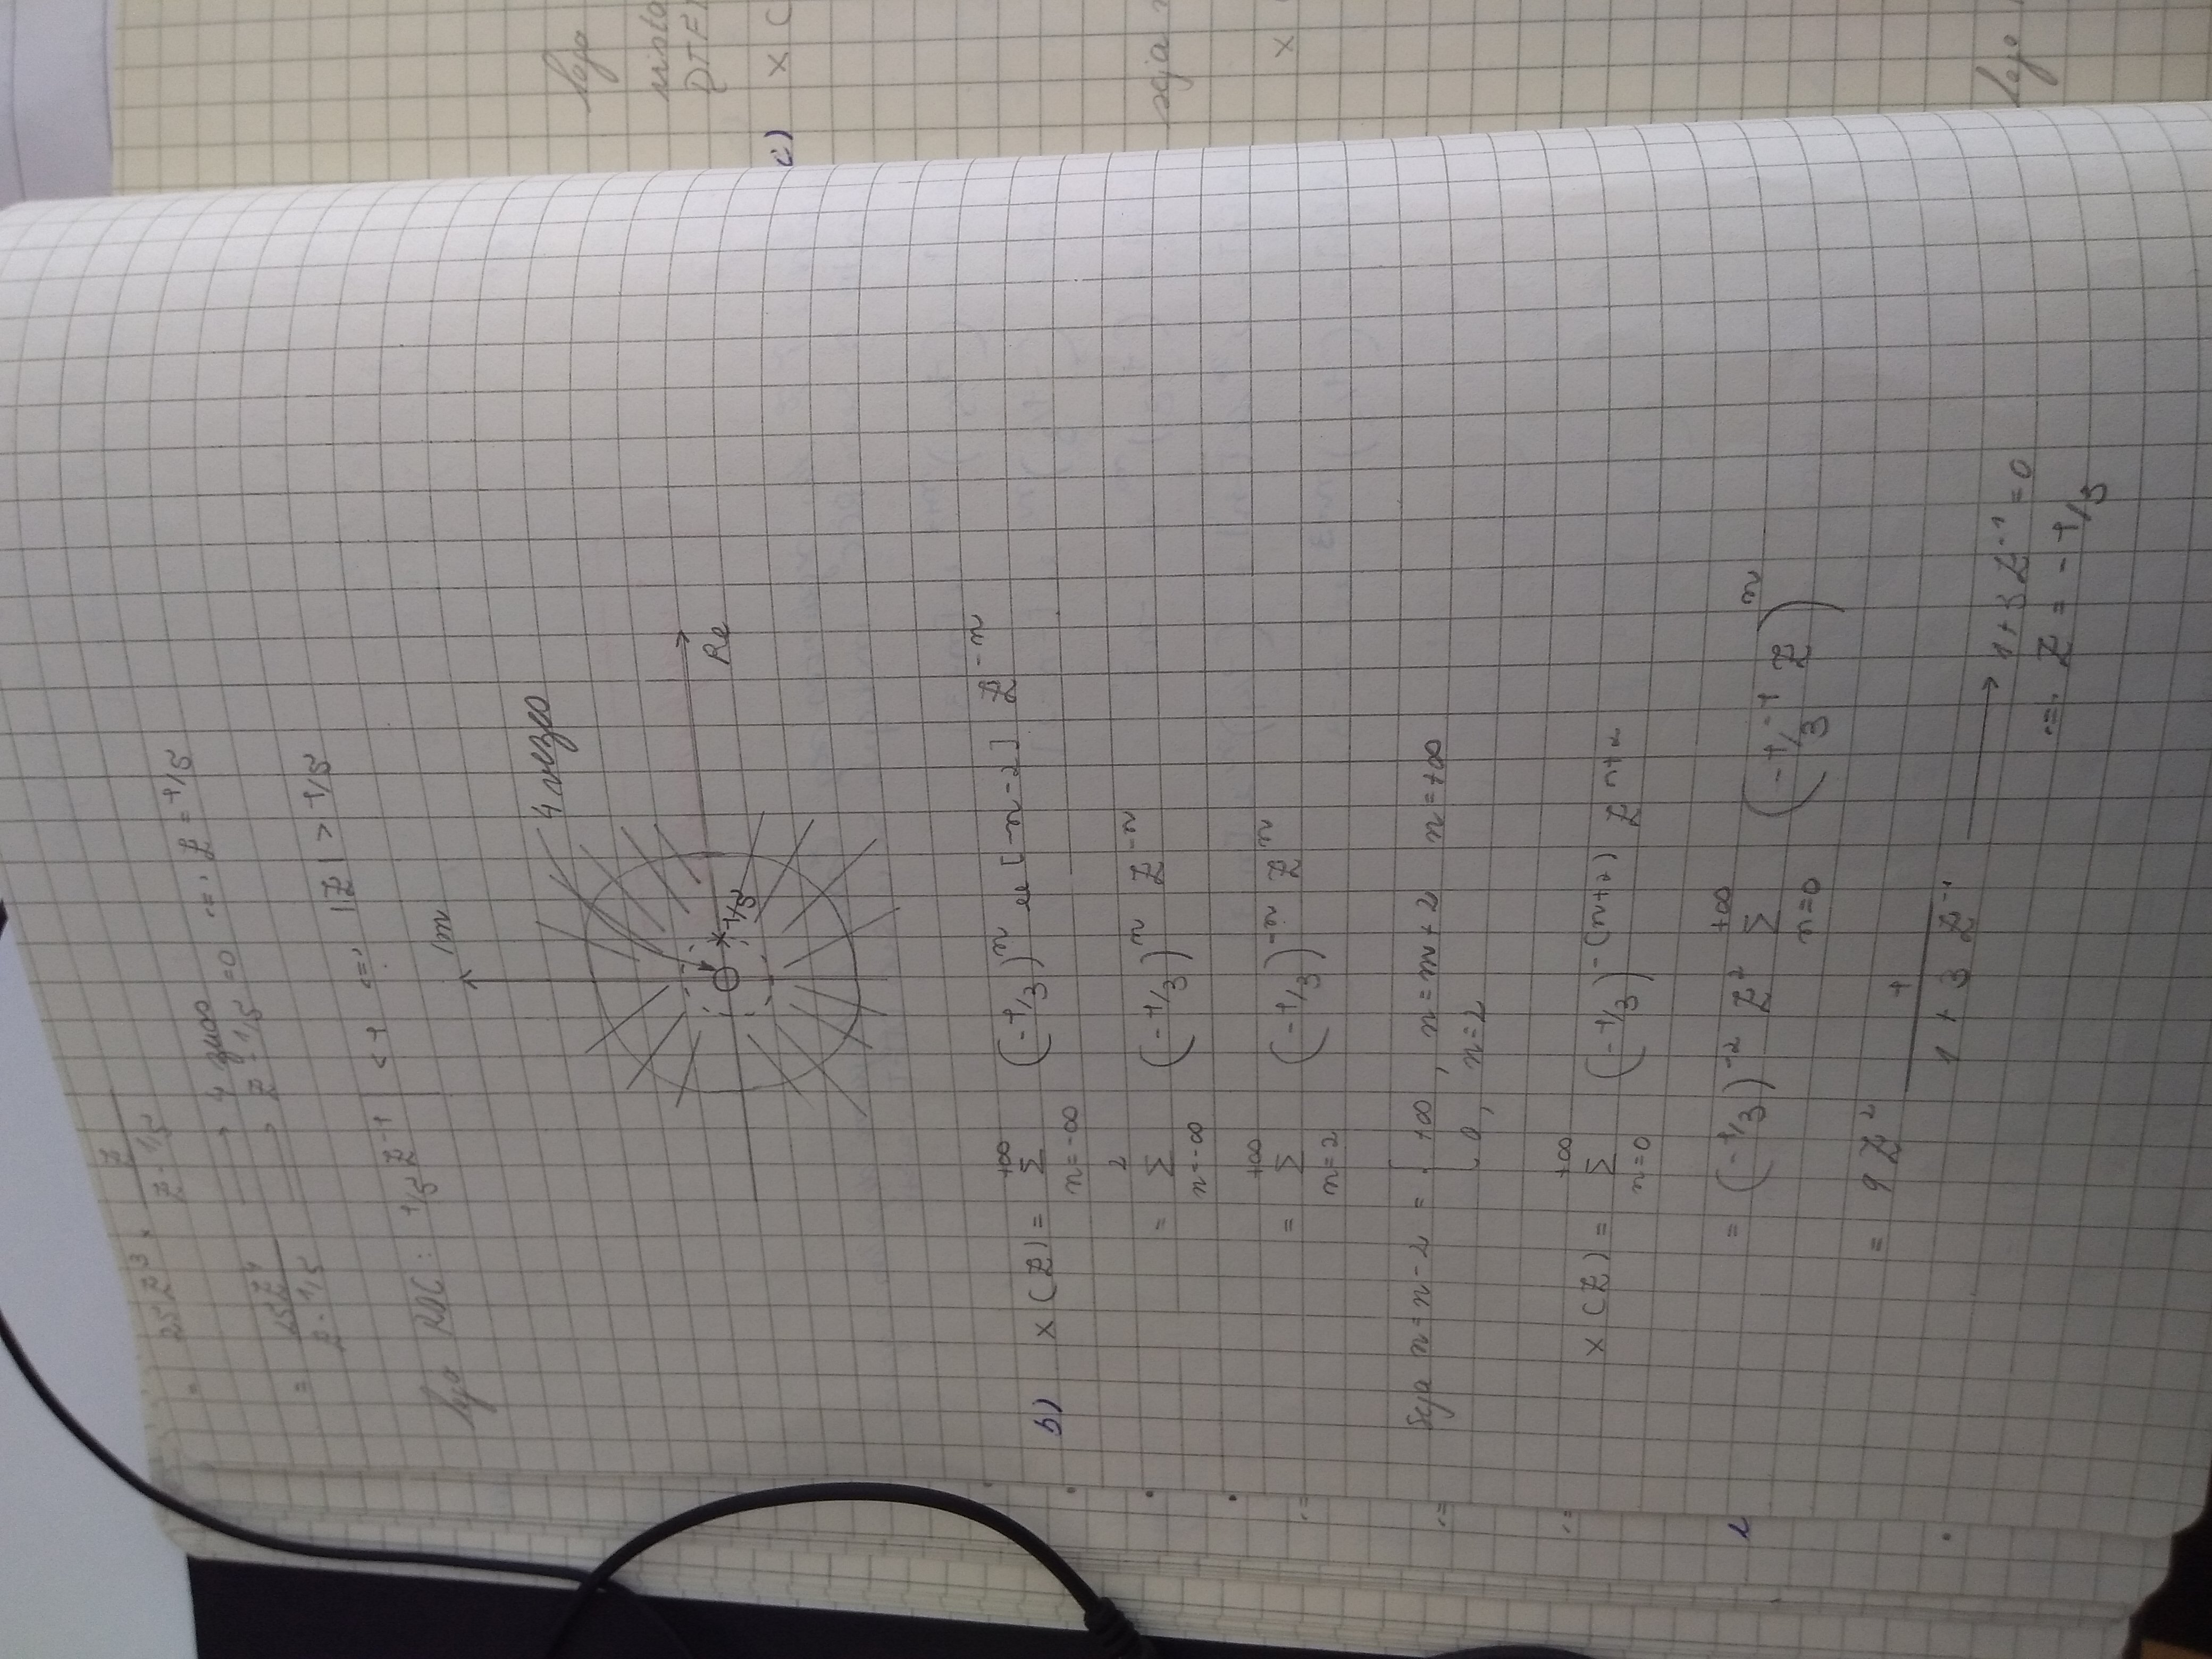 = 25 Z³ · Z / (Z - 1/5)
= 25Z⁴ / (Z - 1/5) → 4 zeros
→ Z - 1/5 = 0 <=> Z = 1/5
logo ROC: 1/5 Z⁻¹ < 1 <=> |Z| > 1/5
Im
4 vezes
Re
1/5
b) X(Z) = Σ_{n=-∞}^{+∞} (-1/3)ⁿ u[-n-2] Z⁻ⁿ
= Σ_{n=-∞}^{2} (-1/3)ⁿ Z⁻ⁿ
= Σ_{n=2}^{+∞} (-1/3)⁻ⁿ Zⁿ
Seja n=n-2 = { +∞, n=m+2 n=+∞
0, n=2
X(Z) = Σ_{n=0}^{+∞} (-1/3)^{-(n+2)} Z^{n+2}
= (-1/3)⁻² Z² Σ_{n=0}^{+∞} (-1/3⁻¹ Z)ⁿ
= 9Z² 1 / (1 + 3 Z⁻¹) → 1+3Z⁻¹=0
<=> Z = -1/3
logo
DTF
c) X C
seja
X
logo